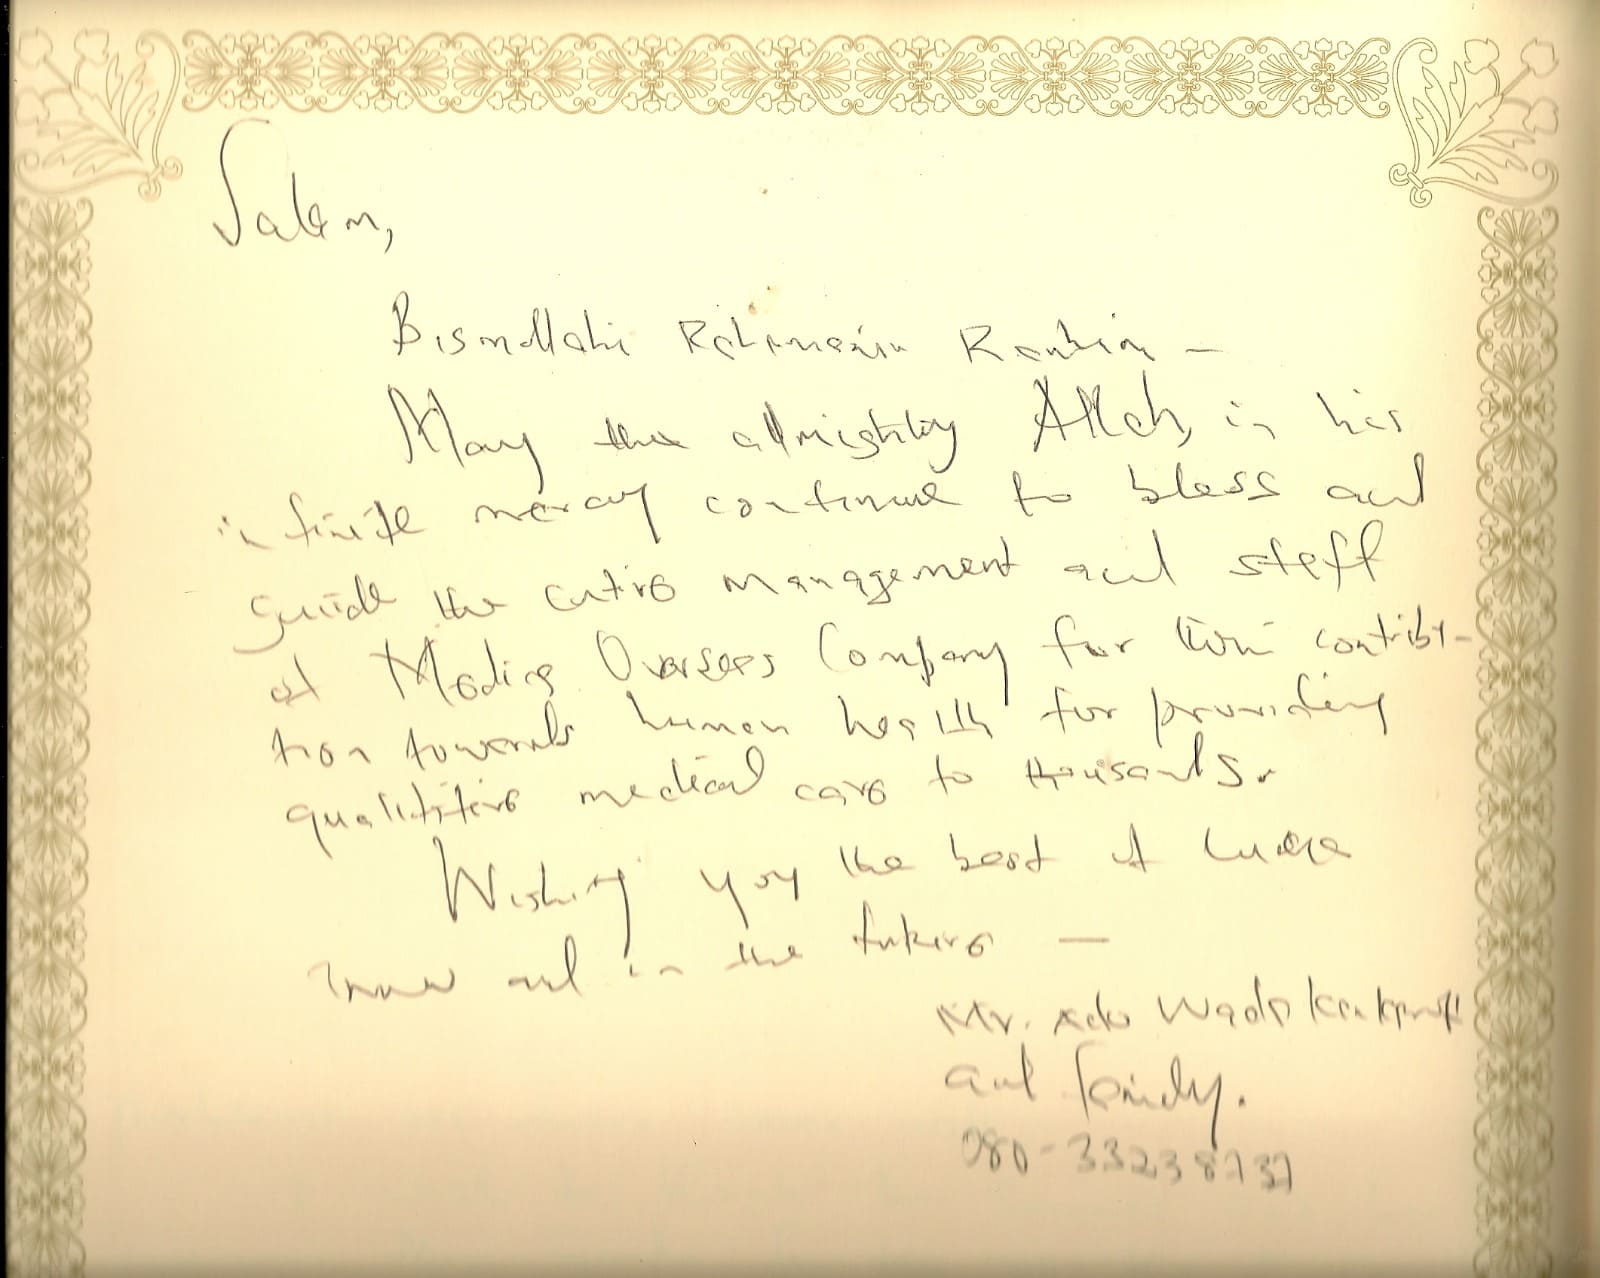 Salam,
Bismillahi Rahmanin Rahim –
May the almighty Allah, in his
infinite mercy continue to bless and
guide the entire management and staff
of Modice Overseas Company for their contribu-
tion towards human health for providing
qualititive medical care to thousands.
Wishing you the best of
and in the future —
Mr. Ado Wada
and family.
080-33238737